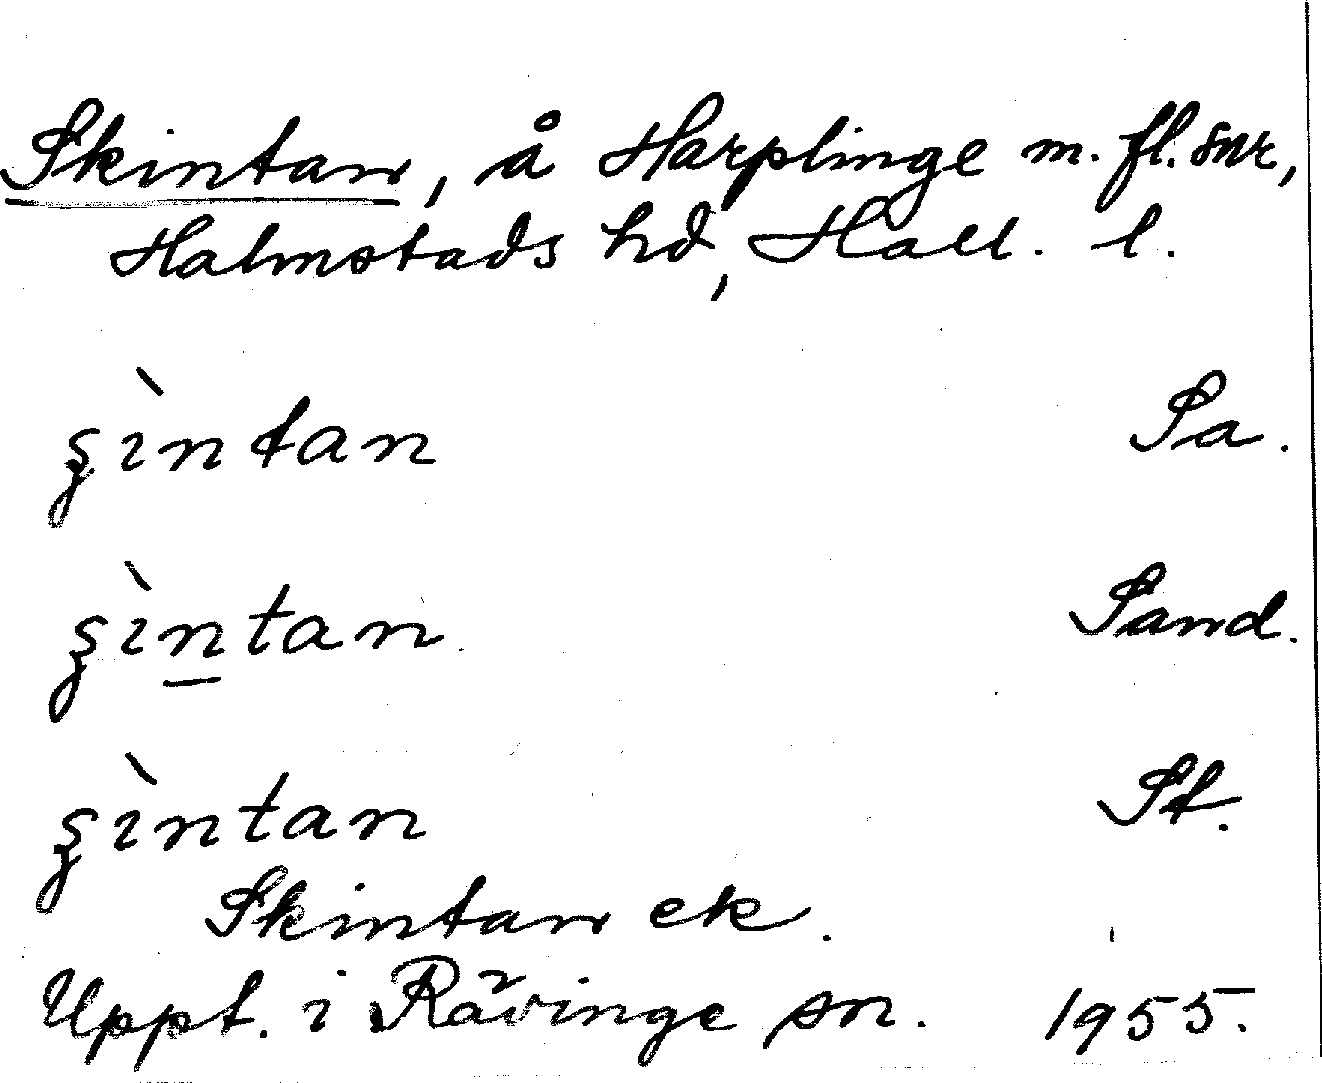 Skintan, å Harplinge m. fl. snr,
Halmstads hd, Hall. l.
şìntan Sa.
şìn̲tan Sand.
şìntan St.
Skintan ek.
Uppt. i Rävinge sn. 1955.